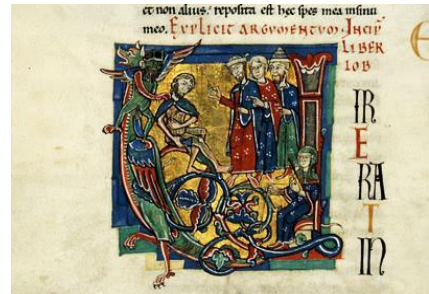 et non alius. reposita est hec spes mea insinu
meo. Explicit argumentum. Incip
liber
iob
IR
E
RA
T
IN